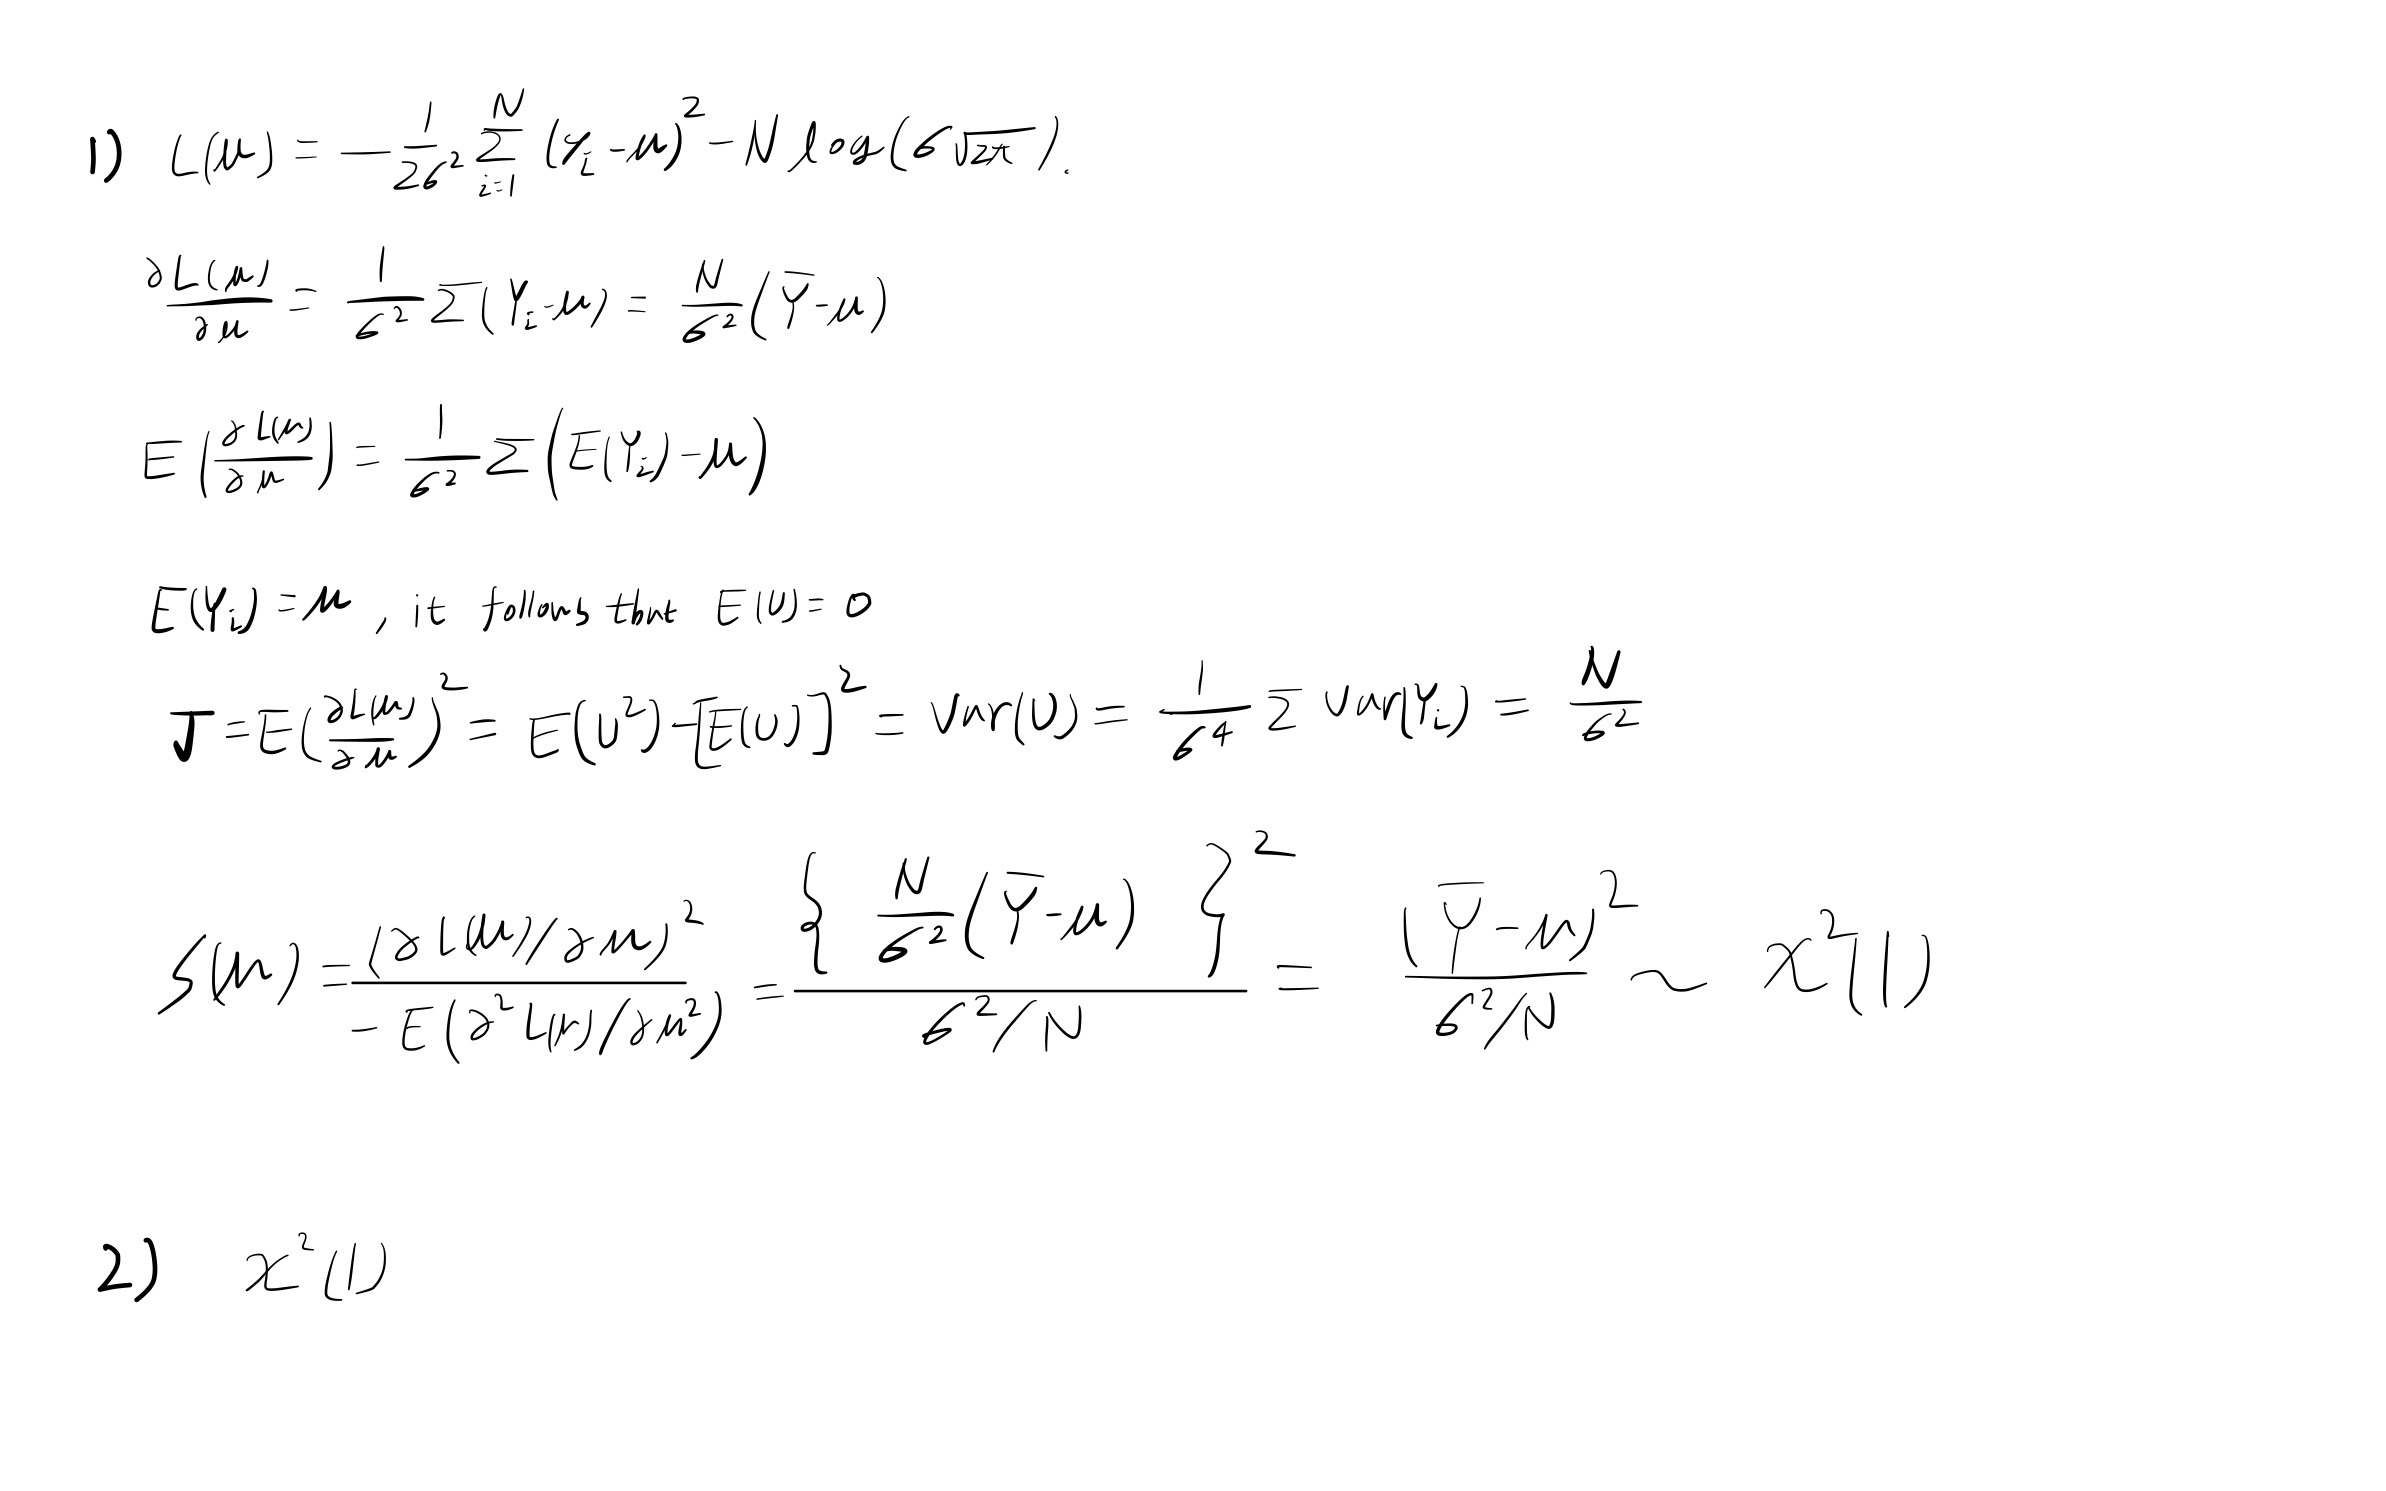 1) L(μ) = − 1/2σ² Σ_{i=1}^{N} (y_i − μ)² − N log(σ√2π).
∂L(μ)/∂μ = 1/σ² Σ(Y_i − μ) = N/σ² (Ȳ − μ)
E(∂L(μ)/∂μ) = 1/σ² Σ(E(Y_i) − μ)
E(Y_i) = μ, it follows that E(U) = 0
J = E(∂L(μ)/∂μ)² = E(U²) − [E(U)]² = Var(U) = 1/σ⁴ Σ Var(Y_i) = N/σ²
S(μ) = (∂L(μ)/∂μ)² / −E(∂²L(μ)/∂μ²) = {N/σ² (Ȳ − μ)}² / σ²/N = (Ȳ − μ)² / σ²/N ~ χ²(1)
2) χ²(1)